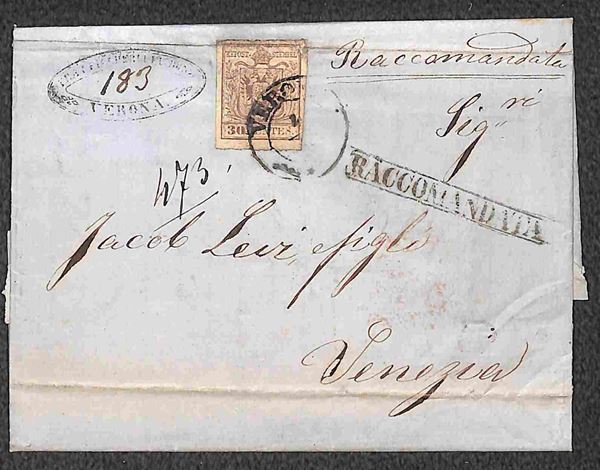 183
VERONA
KKPOST-STEMPEL
30 CENTES.
VERO
Raccomandata
Sig.ri
RACCOMANDATA
473
Jacob Levi, e figli
Venezia